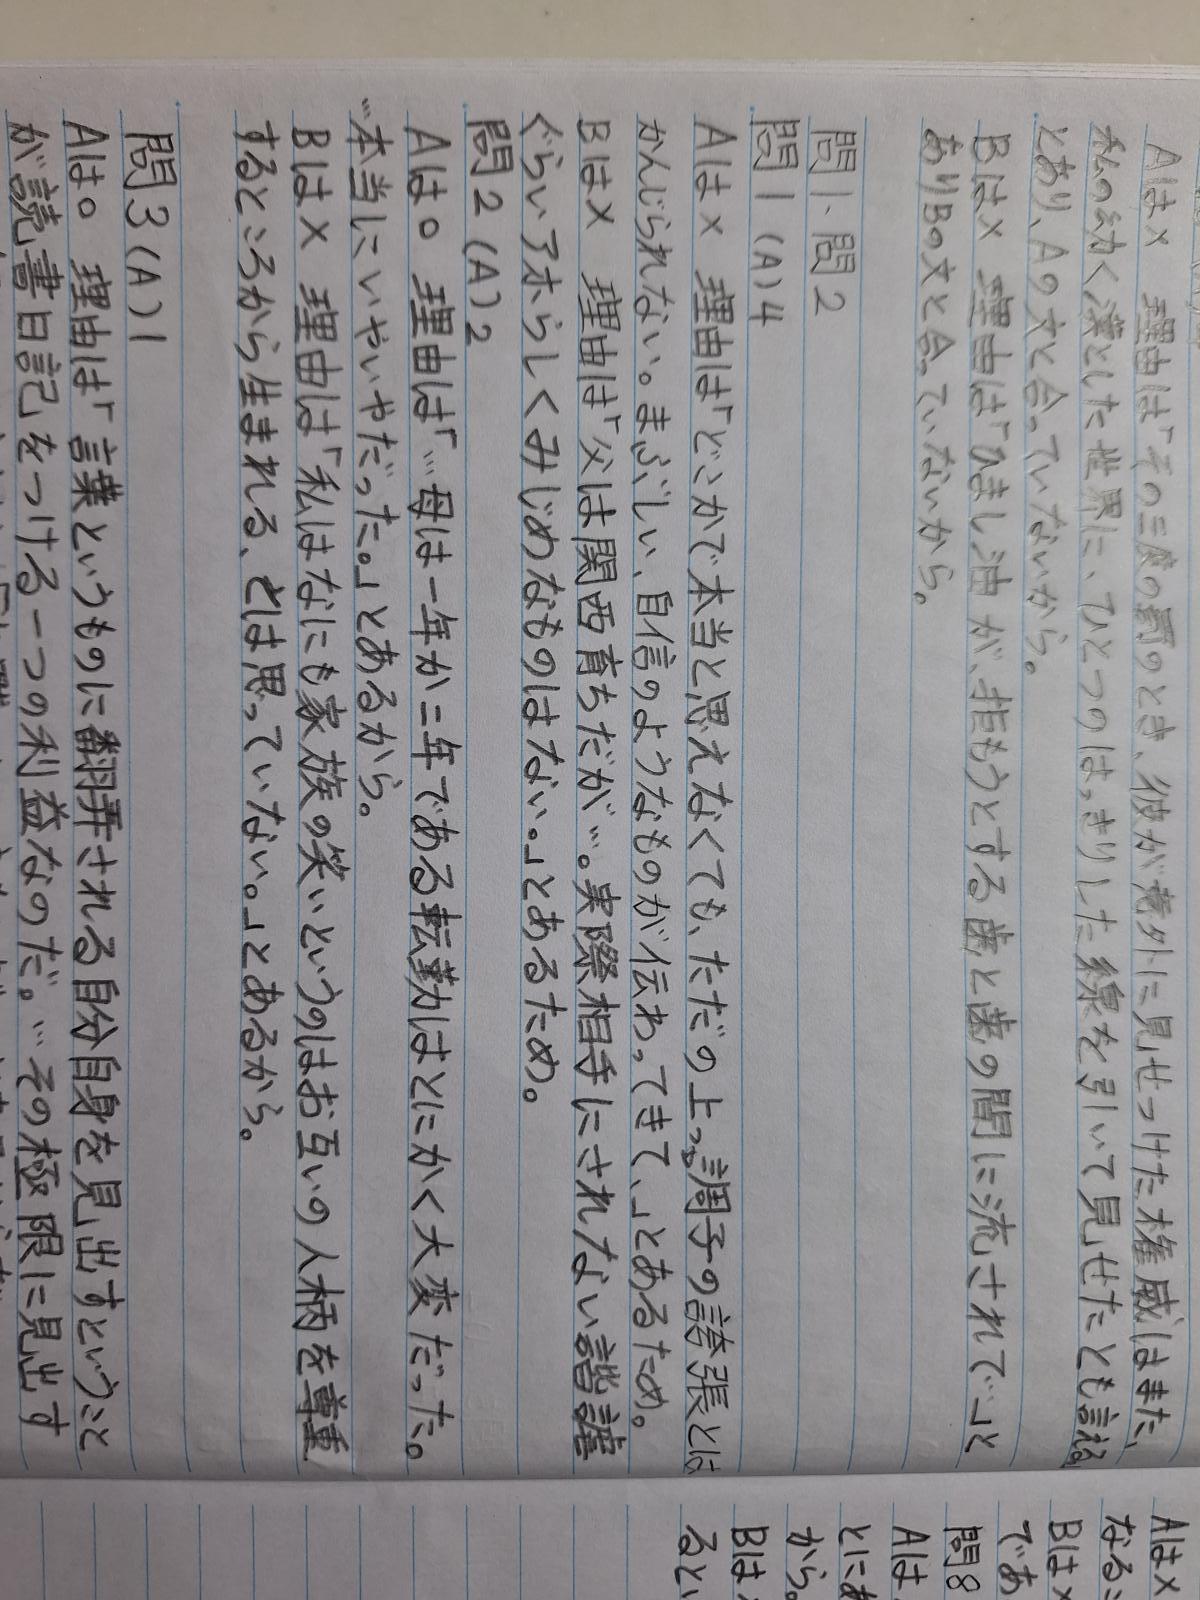 Aは× 理由は「その三度の罰のとき、彼が者外に見せつけた権威はまた、
私の幼く漠とした世界に、ひとつのはっきりした線を引いて見せたとも言える
とあり、Aの文と合っていないから。
Bは× 理由は「ひまし油が、拒もうとする歯と歯の間に流されて…」と
ありBの文と合っていないから。
問1・問2
問1(A)4
Aは× 理由は「どこかで本当と思えなくても、ただの上っ調子の誇張とは
かんじられない。まぶしい、自信のようなものが伝わってきて、」とあるため。
Bは× 理由は「父は関西育ちだが…。実際相手にされない諧謔
ぐらいアホらしくみじめなものはない。」とあるため。
問2(A)2
Aは○ 理由は「…母は一年か二年である転勤はとにかく大変だった。
…本当にいやいやだった。」とあるから。
Bは× 理由は「私はなにも家族の笑いというのはお互いの人柄を尊重
するところから生まれる、とは思っていない。」とあるから。
問3(A)1
Aは○ 理由は「言葉というものに翻弄される自分自身を見出すということ
が読書日記をつける一つの利益なのだ。…その極限に見出す
Aは×
なる
Bは×
であ
問8
Aは
とにあ
から。
Bは
ると